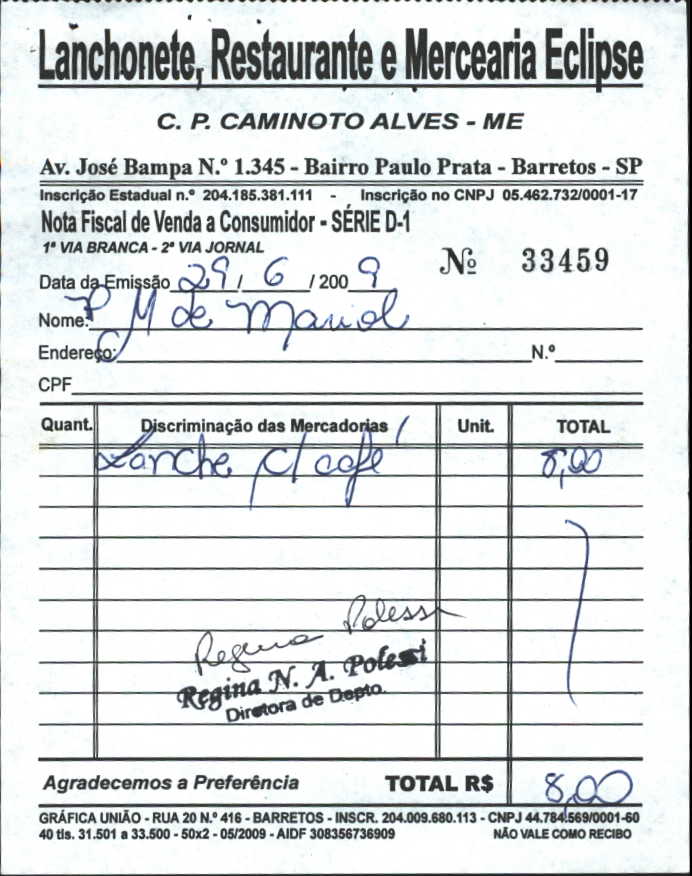 Lanchonete, Restaurante e Mercearia Eclipse
C. P. CAMINOTO ALVES - ME
Av. José Bampa N.º 1.345 - Bairro Paulo Prata - Barretos - SP
Inscrição Estadual n.º 204.185.381.111 - Inscrição no CNPJ 05.462.732/0001-17
Nota Fiscal de Venda a Consumidor - SÉRIE D-1
1ª VIA BRANCA - 2ª VIA JORNAL
Nº 33459
Data da Emissão 29 / 6 / 2009
Nome: P M de
Endereço: N.º
CPF
Quant. Discriminação das Mercadorias Unit. TOTAL
Lanche c/ café 8,00
Regina Polessi
Regina N. A. Polessi
Diretora de Depto.
Agradecemos a Preferência TOTAL R$ 8,00
GRÁFICA UNIÃO - RUA 20 N.º 416 - BARRETOS - INSCR. 204.009.680.113 - CNPJ 44.784.569/0001-60
40 tls. 31.501 a 33.500 - 50x2 - 05/2009 - AIDF 308356736909 NÃO VALE COMO RECIBO